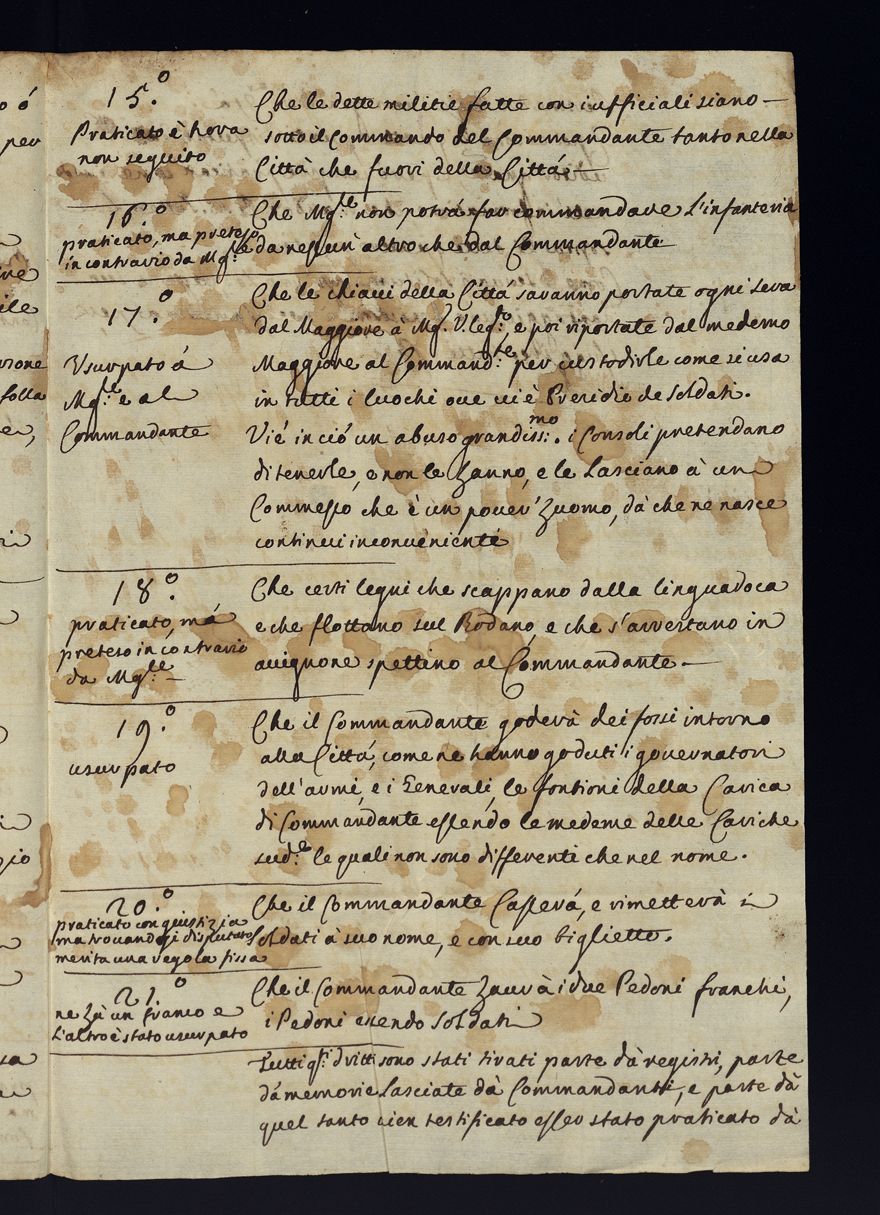 15.º
Praticato è hora
non seguito
Che le dette militie fatte con i ufficiali siano —
sotto il Commando del Commandante tanto nella
Città che fuori della Città. —
16.º
praticato, ma preteso
in contrario da Mg.re
Che Mg.re non potrà far commandare l'infanteria
da nessun altro che dal Commandante
17.º
Usurpato á
Mg.re e al
Commandante
Che le chiaui della Cittá saranno portate ogni sera
dal Maggiore à Mg.r V.leg.to e poi riportate dal medemo
Maggiore al Command.te per custodirle come si usa
in tutti i luochi oue ui è Presidio de soldati.
Vi é in ció un abuso grandiss:mo. i Consoli pretendano
di tenerle, e non le hanno, e le lasciano à un
Commesso che è un pouer' huomo, dà che ne nasce
continui inconuenienti
18.º
praticato, má
preteso in contrario
da Mg.re —
Che certi legni che scappano dalla linguadoca
e che flottano sul Rodano, e che s'arrestano in
auignone spettino al Commandante. —
19.º
usurpato
Che il Commandante goderà dei fossi intorno
alla Cittá, come ne hanno goduti i gouernatori
dell'armi, e i Generali, le fontioni della Carica
di Commandante essendo le medeme delle Cariche
sud.e le quali non sono differenti che nel nome.
20.º
praticato con giustizia
ma trouandosi disputato
merita una regola fissa
Che il Commandante Casserá, e rimetterà i
soldati à suo nome, e con suo biglietto.
21.º
ne hà un franco e
l'altro è stato usurpato
Che il Commandante haurà i due Pedoni franchi,
i Pedoni essendo soldati
Tutti q.ti dritti sono stati tirati parte dà registri, parte
dá memorie lasciate dà Commandanti, e parte dà
quel tanto uien testificato esser stato praticato dà